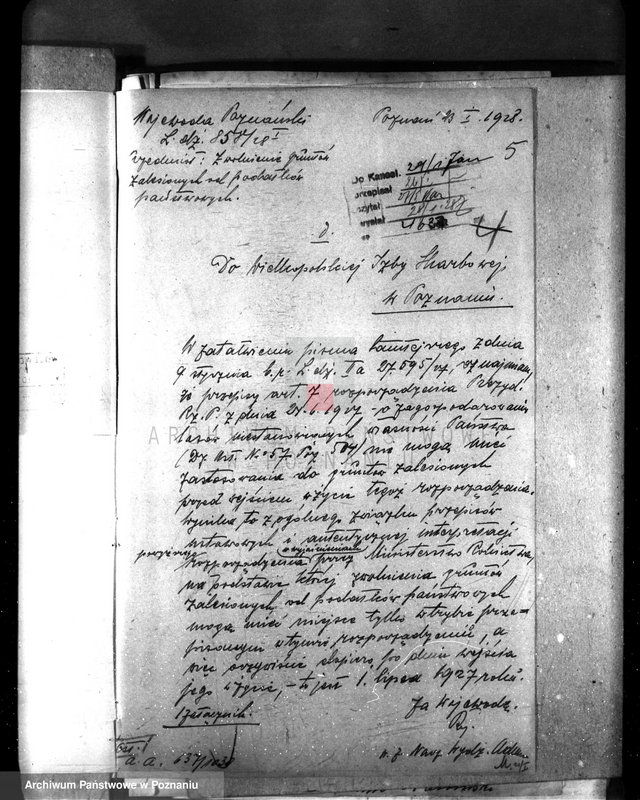 Wojewoda Poznański
L. dz. 858/28 I
Poznań 23 I. 1928.
Przedmiot: Zwolnienie gruntów
zalesionych od podatków
państwowych.
5
Do Kancel. 24/1
przepisał
czytał
wysłał
4
Do Wielkopolskiej Izby Skarbowej
w Poznaniu.
W załatwieniu pisma tamtejszego z dnia
9 stycznia b.r. L. dz. II a 27.595/27,
że przepisy art. 7 rozporządzenia Prezyd.
Rz. P. z dnia 24. 1927 - o zagospodarowaniu
lasów niestanowiących własności Państwa
(Dz. Ust. No 57 Poz. 504) nie mogą mieć
zastosowania do gruntów zalesionych
przed wejściem w życie tegoż rozporządzenia.
Wynika to z ogólnego związku przepisów
ustawowych i autentycznej interpretacji
powyższego rozporządzenia wyjaśnieniem przez Ministerstwo Rolnictwa,
na podstawie której zwolnienia gruntów
zalesionych od podatków państwowych
mogą mieć miejsce tylko w trybie prze-
pisanym w tymże rozporządzeniu, a
więc oczywiście dopiero po dniu wejścia
jego w życie, - to jest 1. lipca 1927 roku.
1 załącznik.
Za Wojewodę.
a. a. 637/1928
ARCHIWUM PAŃSTWOWE
W POZNANIU
Archiwum Państwowe w Poznaniu